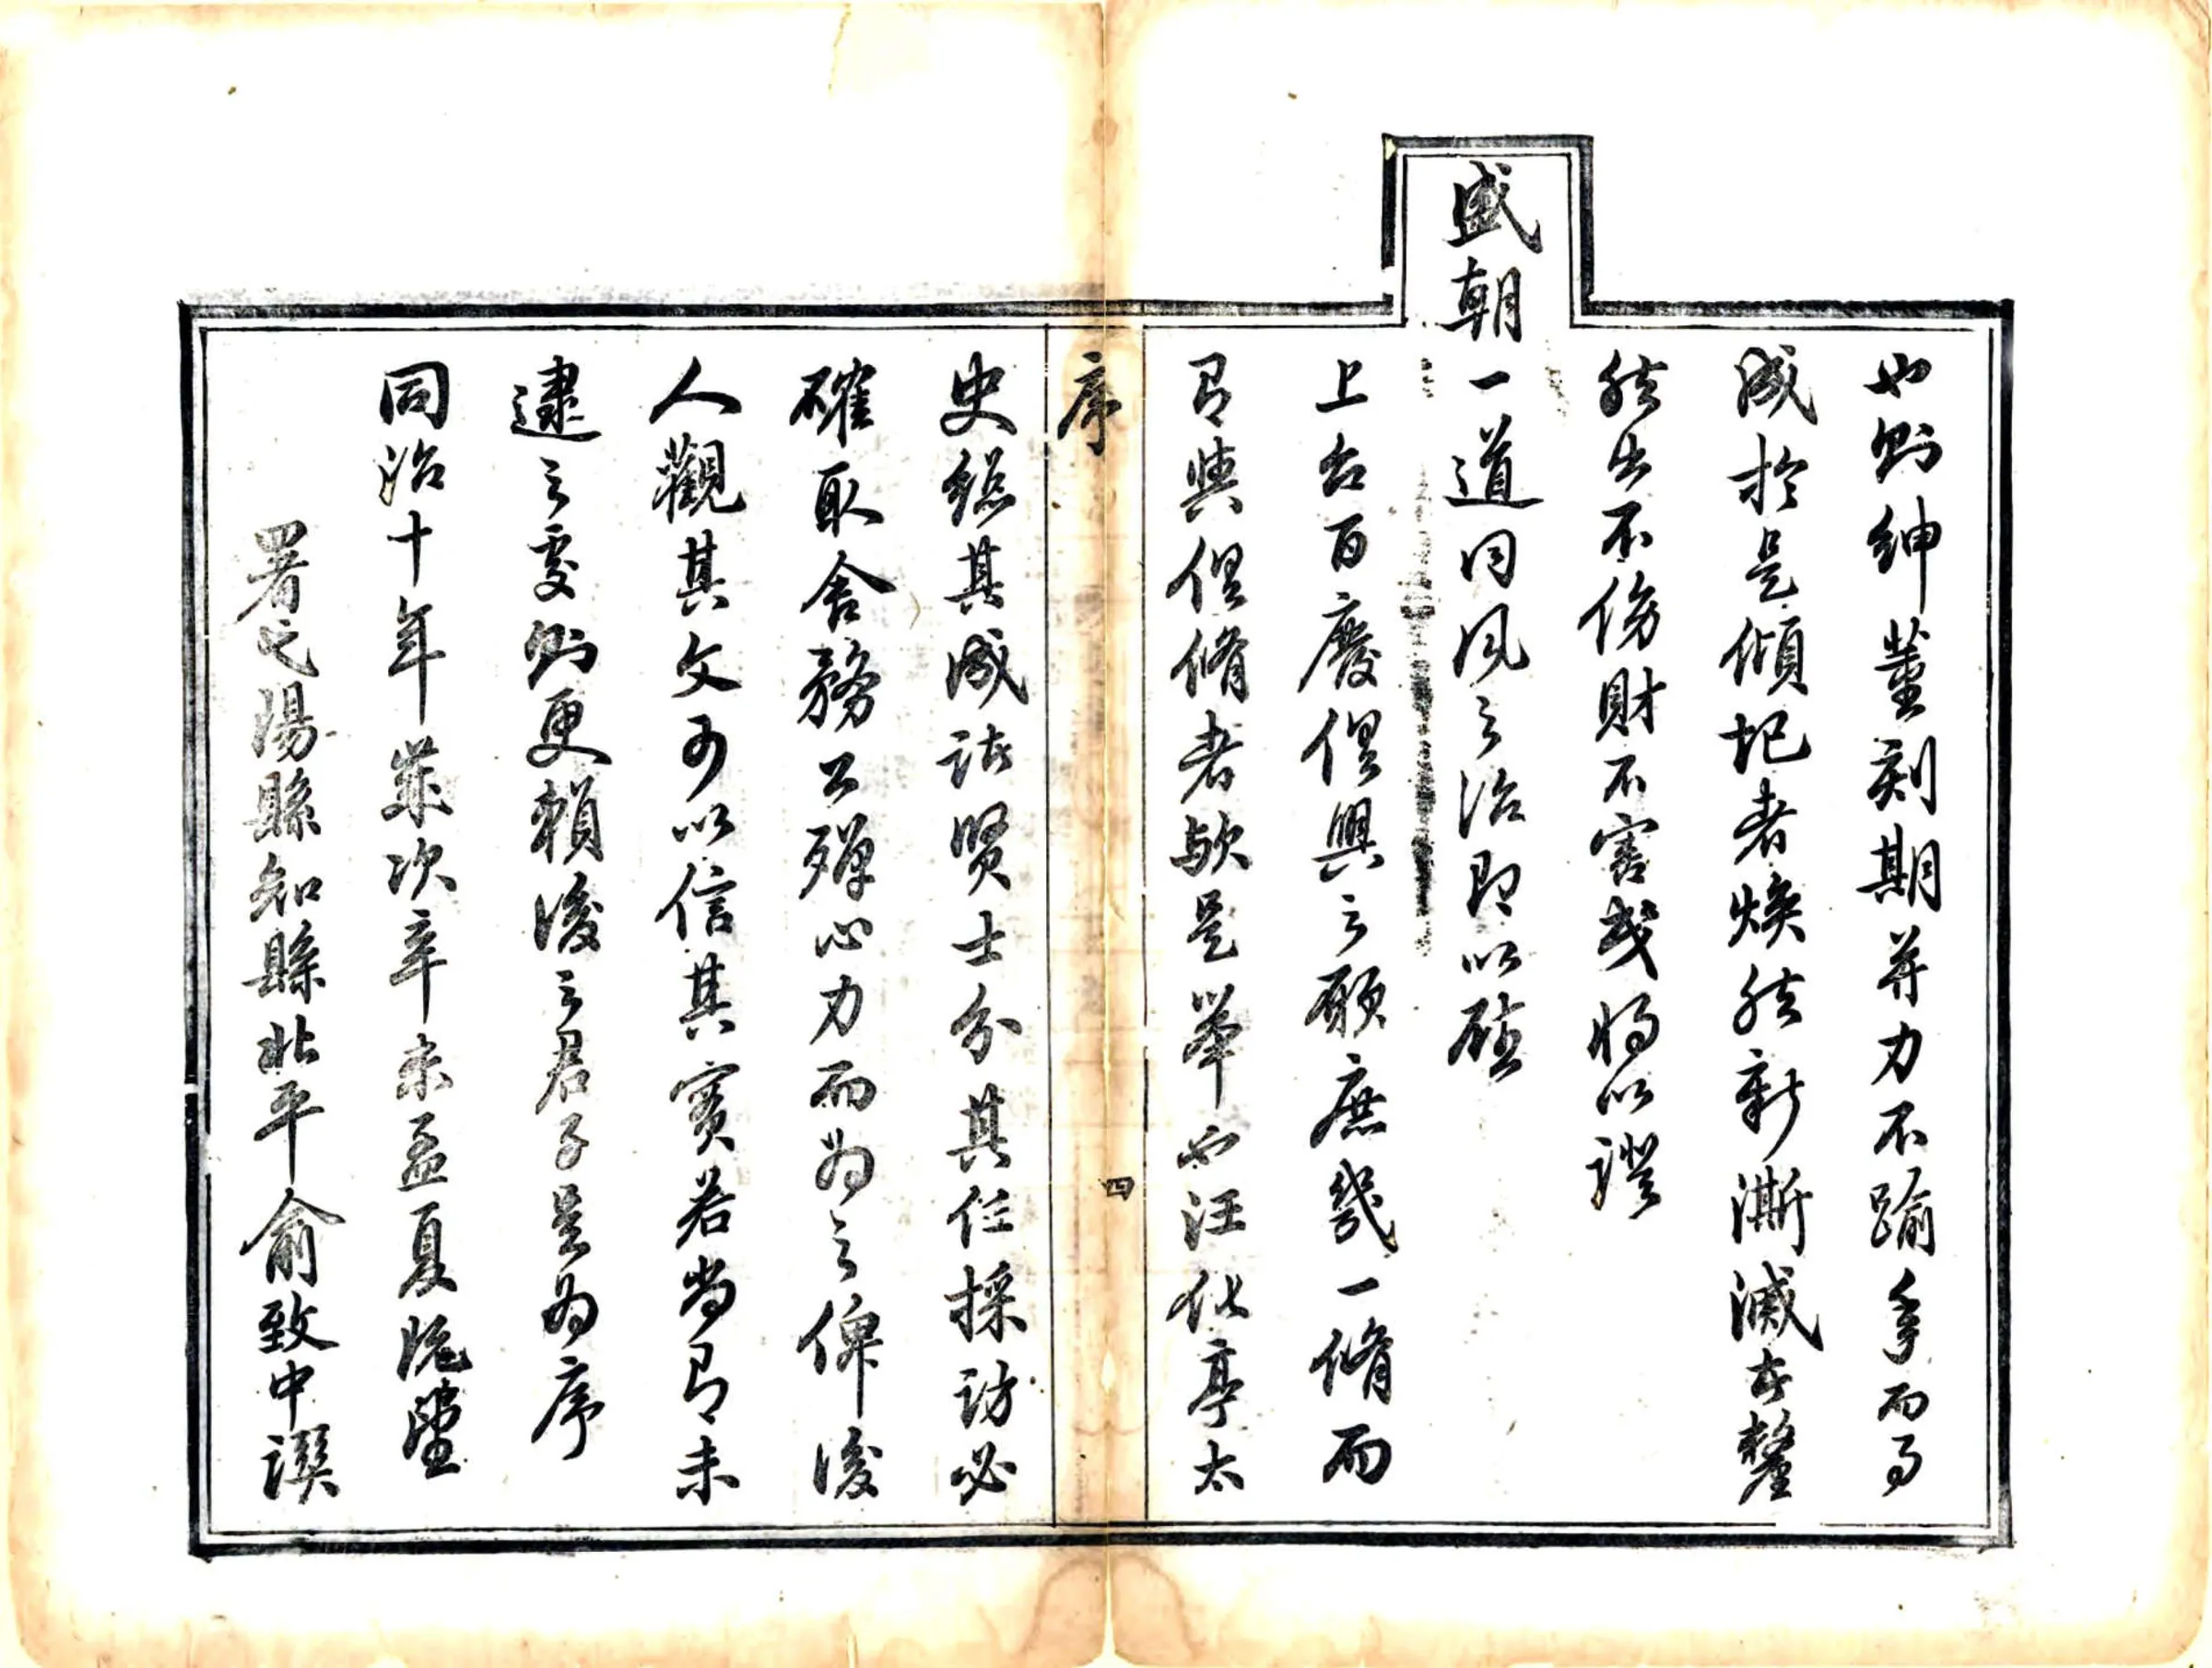 也則紳董刻期并力不踰年而又
成於是傾圯者煥然新澌滅者釐
然出不傷財不害民將以證
盛朝一道同風之治即以驗
上台百廢俱興之願庶幾一脩而
有與俱脩者歟是舉也汪化亭太
序
四
史總其成諸賢士分其任採訪必
確取舍務公殫心力而為之俾後
人觀其文可以信其實若尚有未
逮之處則更賴後之君子是為序
同治十年歲次辛未孟夏既望
署弋陽縣知縣北平俞致中譔